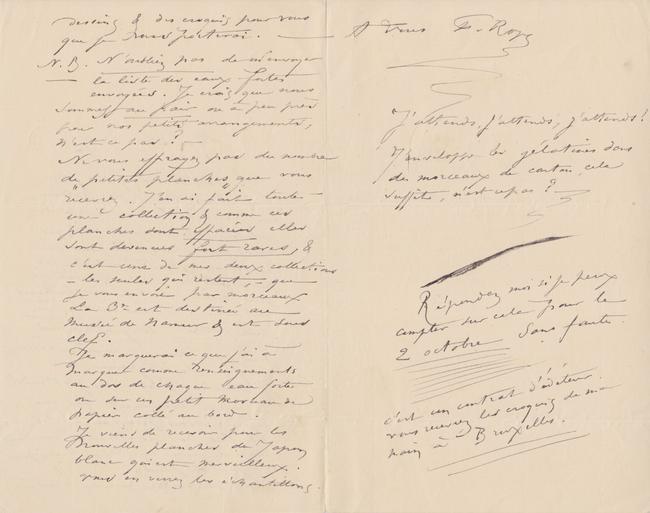 dessins & des croquis pour vous
que je vous porterai. —
N.B. N'oubliez pas de m'envoyer
la liste des eaux-fortes
envoyées. Je crois que nous
sommes au pair ou à peu près
pour nos petits arrangements,
n'est ce pas?
Ne vous effrayez pas du nombre
de "petites planches" que vous
recevrez. J'en ai fait toute
une collection & comme ces
planches sont effacées elles
sont devenues fort rares, &
c'est une de mes deux collections
– les seules qui restent, – que
je vous envoie par morceaux
La 3e est destinée au
Musée de Namur & est sous
clef.
Je marquerai ce que j'ai à
marquer comme renseignements
au dos de chaque eau forte
ou sur un petit morceau de
papier collé au bord.
Je viens de recevoir pour les
nouvelles planches du Japon
blanc qui est merveilleux.
vous en verrez les échantillons.
A vous F. Rops
"J'attends, j'attends, j'attends!
J'enveloppe les gélatines dans
des morceaux de carton, cela
suffit, n'est ce pas?
Répondez moi si je peux
compter sur cela pour le
2 octobre sans faute.
c'est un contrat d'éditeur.
vous recevrez les croquis de ma
main à Bruxelles.